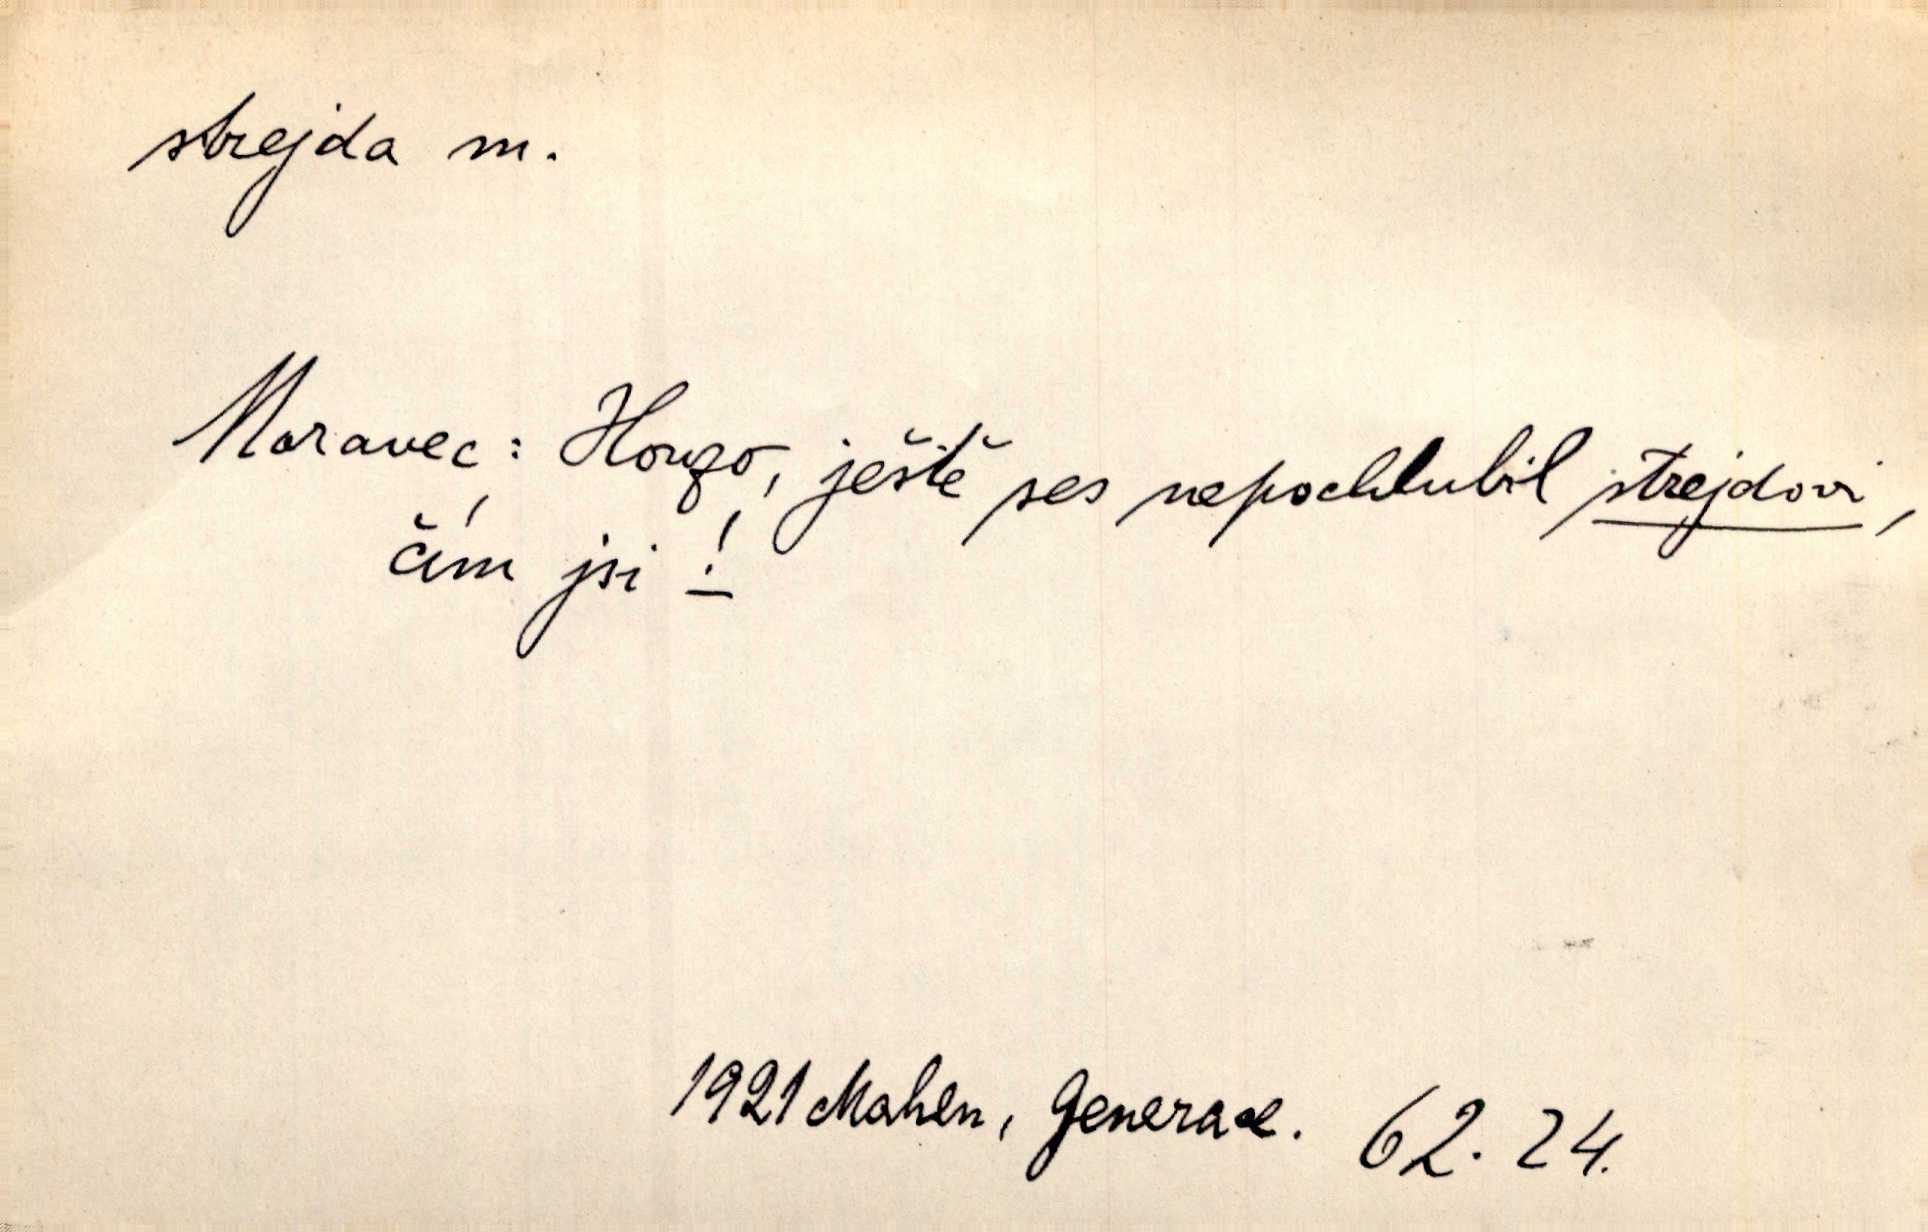 strejda m.
Moravec: Honzo, ještě ses nepochlubil strejdovi,
čím jsi!
1921 Mahen, Generace. 62. 24.